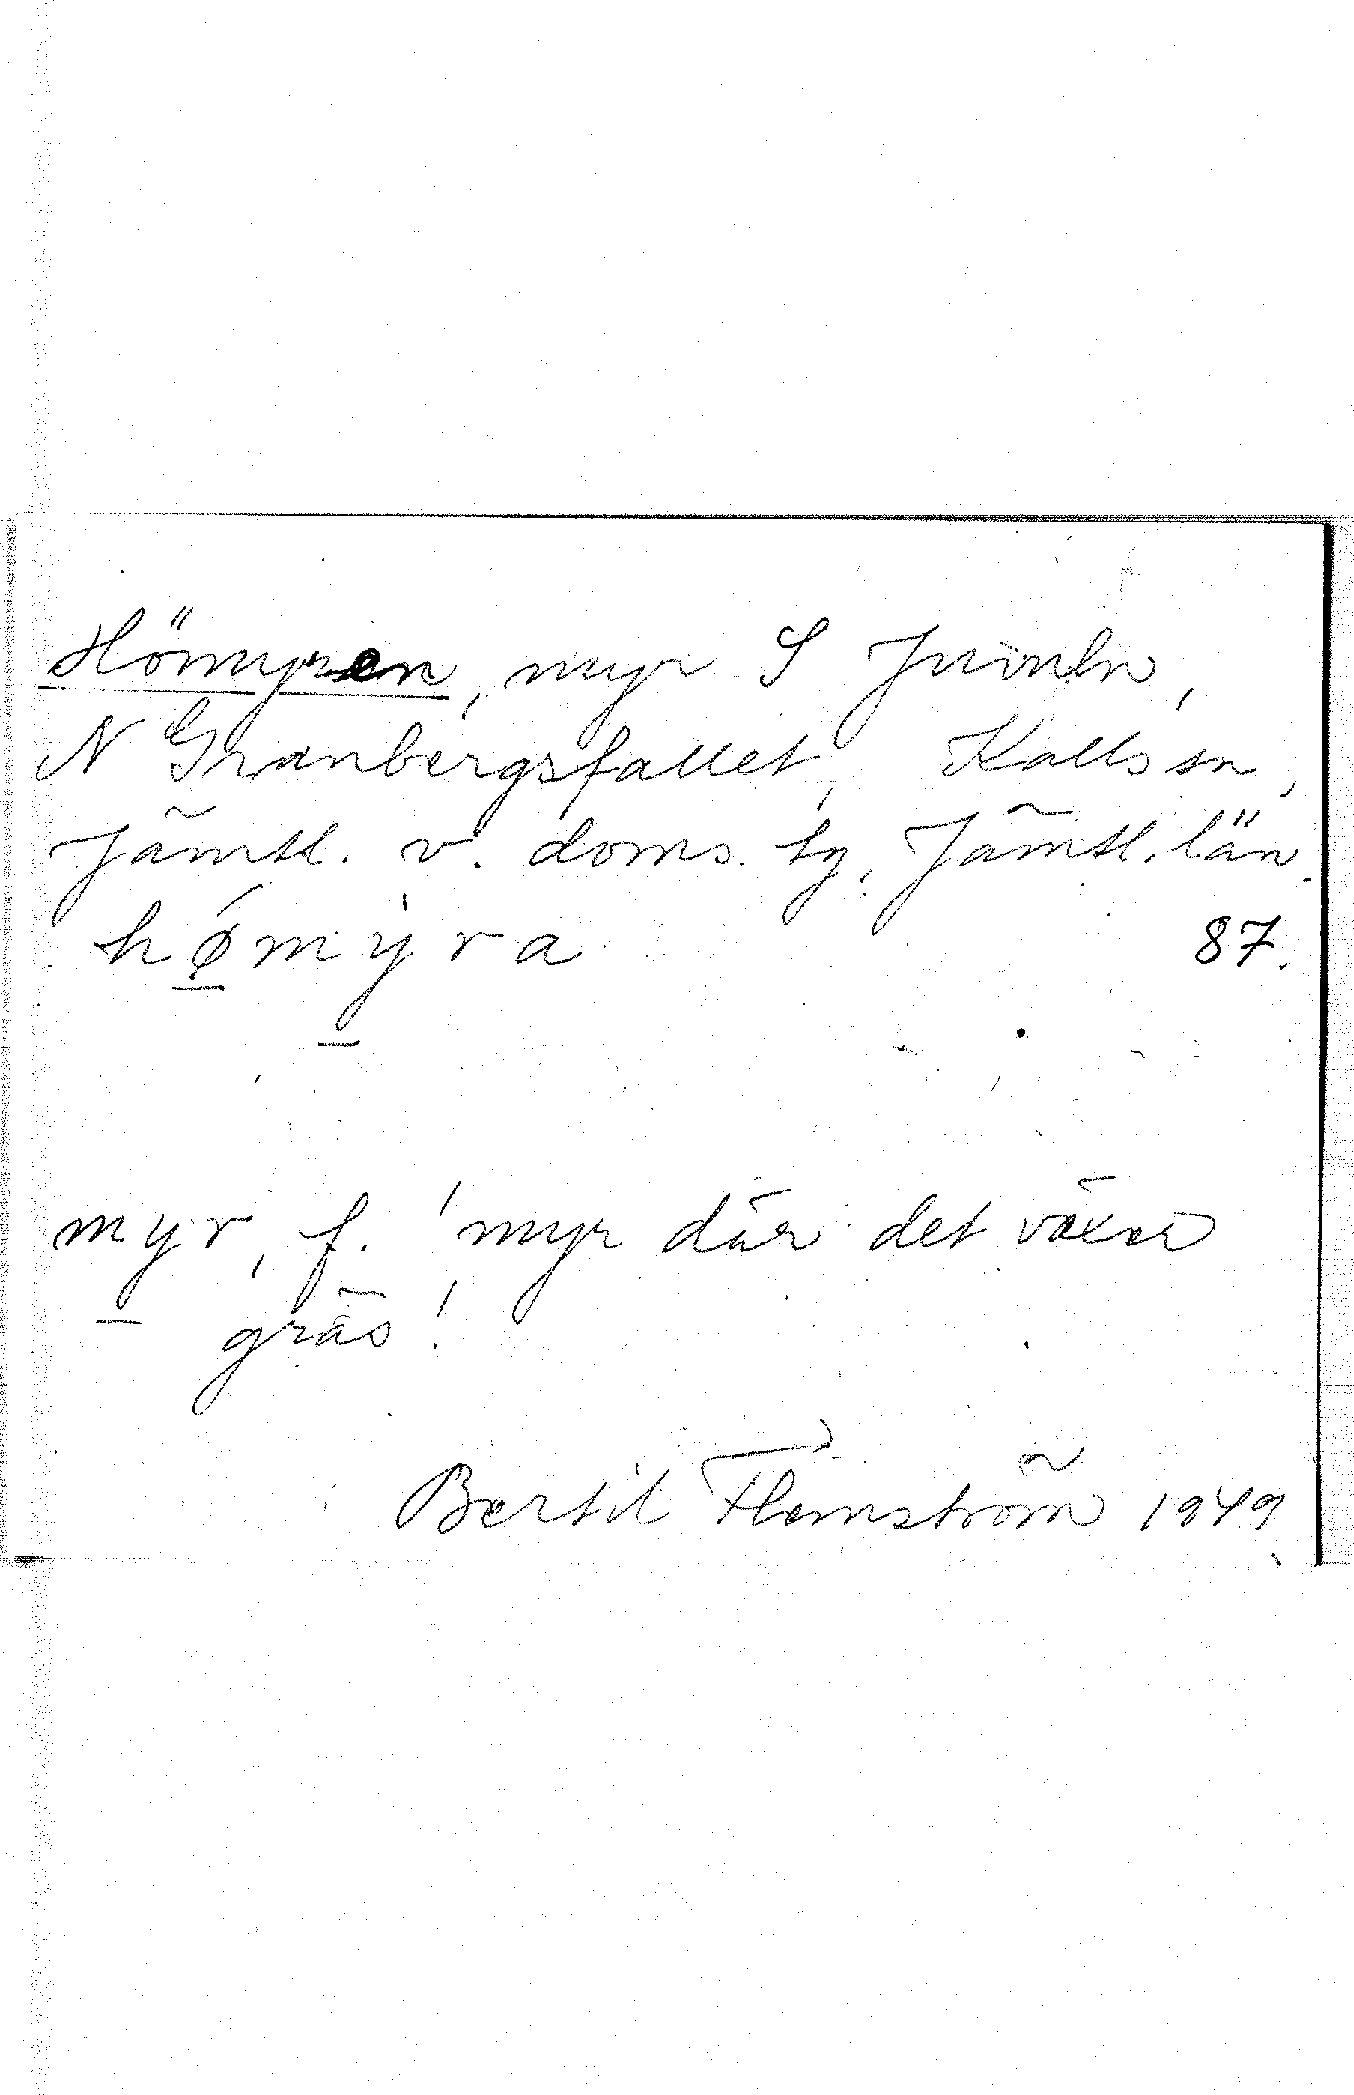 Hömyren, myr S Juvuln,
N Granbergsfallet, Kalls sn,
Jämtl. v. doms. tg, Jämtl. län.
hǿmy̍ra 87.
myr, f. 'myr där det växer
gräs'.
Bertil Flemström 1949